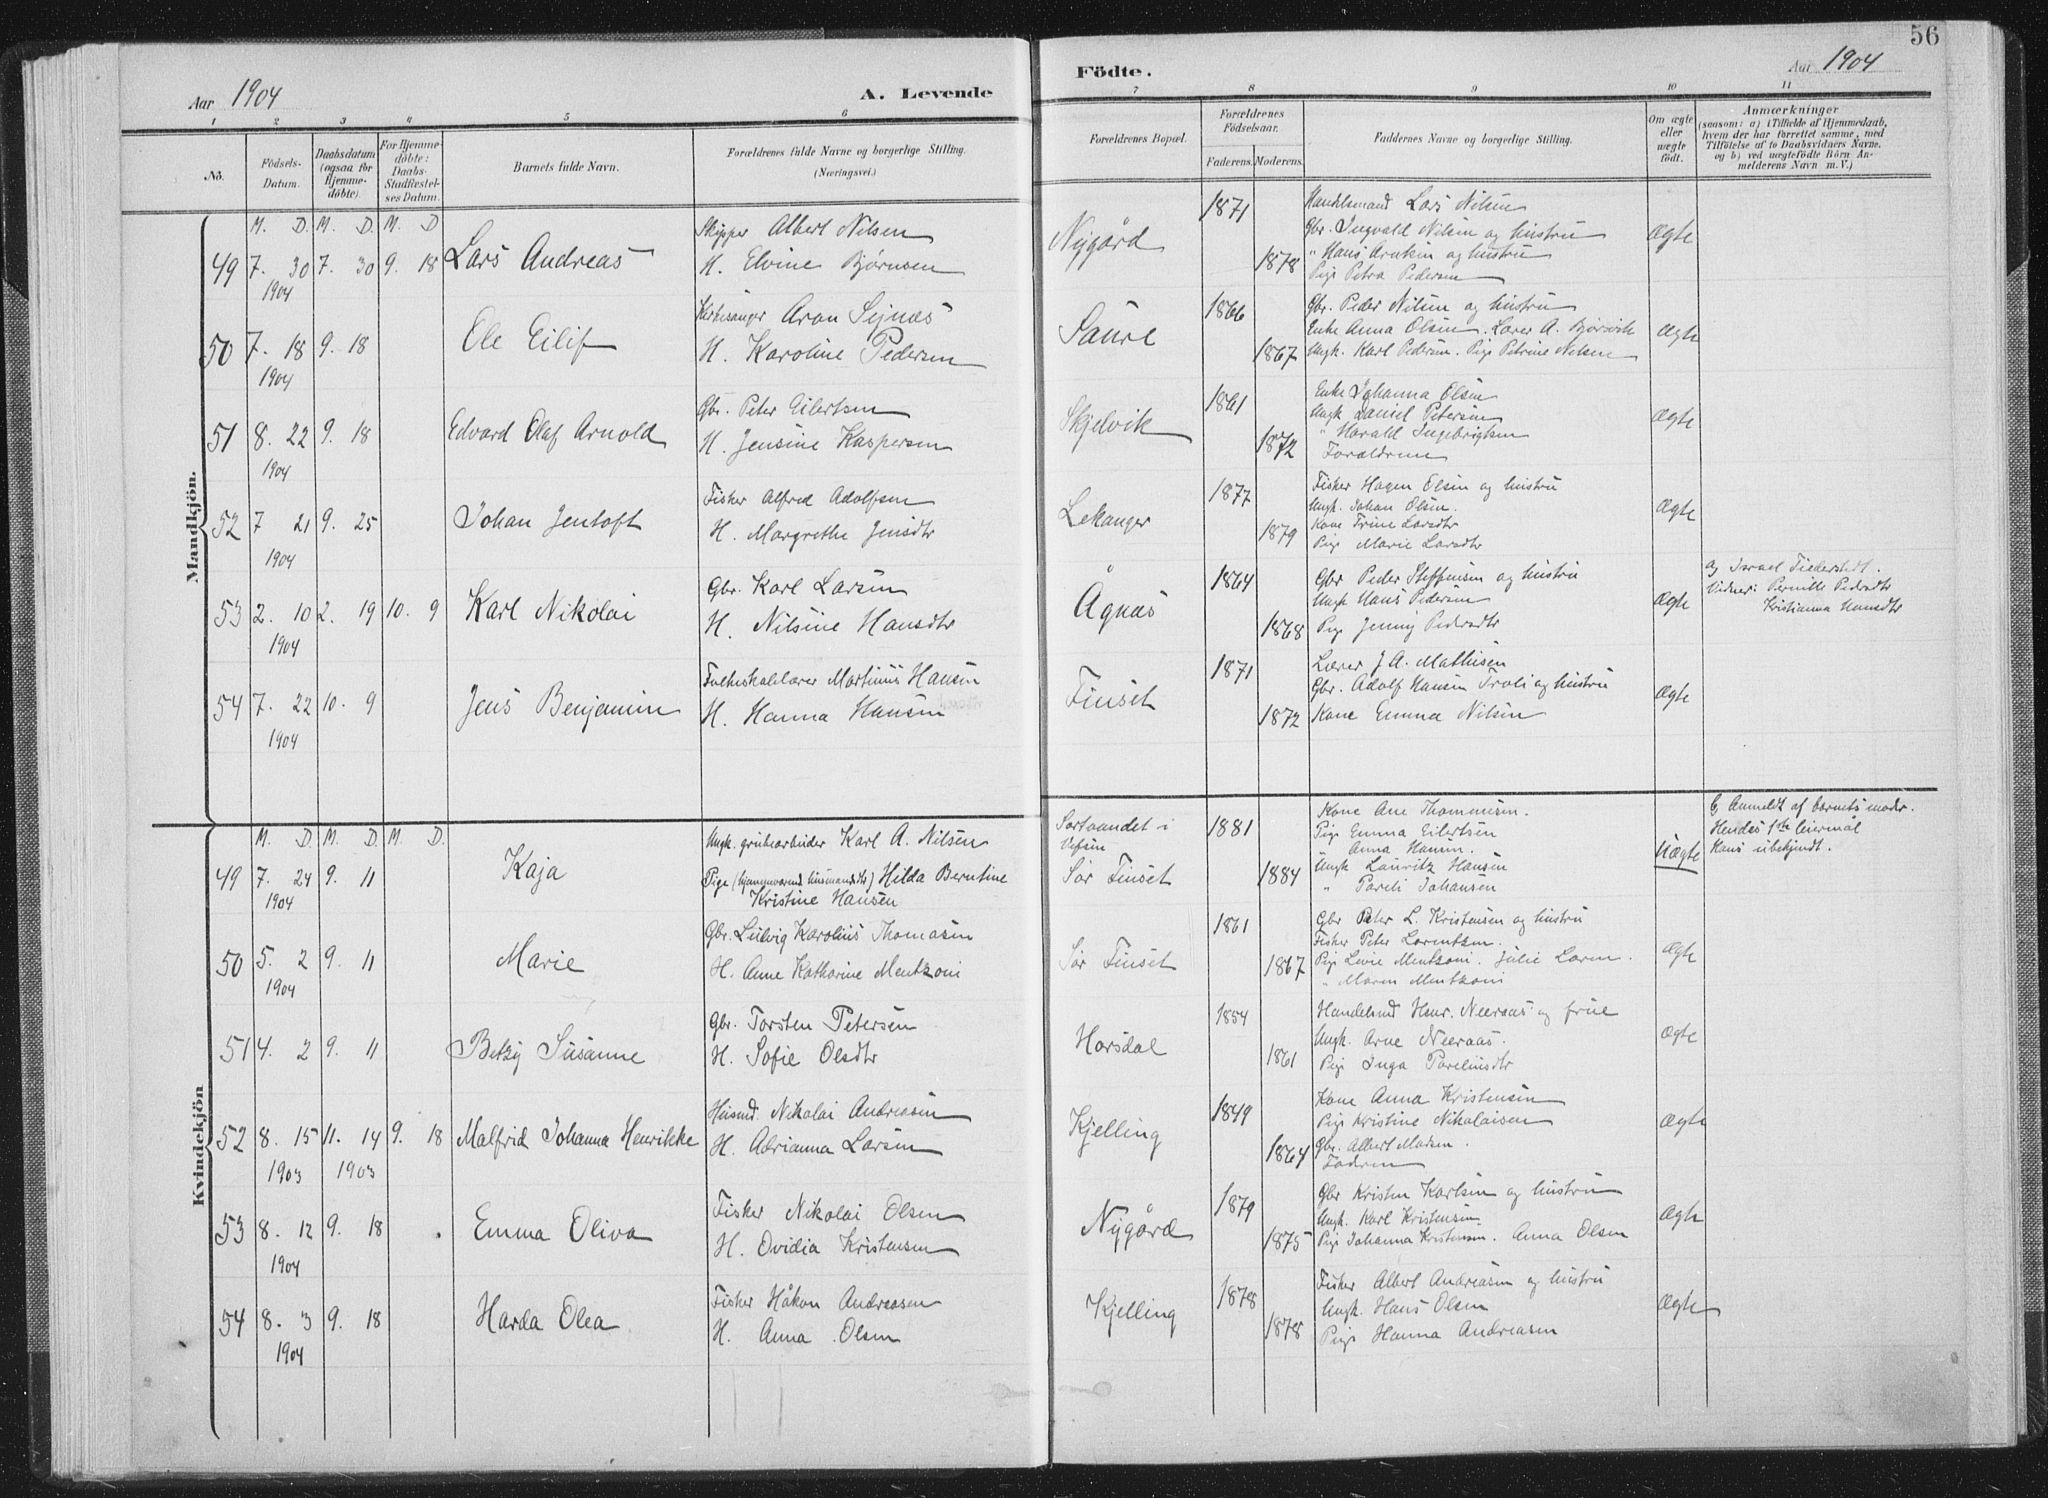 56
Aar 1904
A. Levende
Födte.
Aar 1904
1 2 3 4 5 6 7 8 9 10 11
No.
Födsels-Datum.
Daabsdatum (ogsaa for Hjemme-döbte).
For Hjemme-döbte: Daabs-Stadfæstel-ses Datum.
Barnets fulde Navn.
Forældrenes fulde Navne og borgerlige Stilling. (Næringsvei.)
Forældrenes Bopæl.
Forældrenes Födselsaar.
Faderens. Moderens.
Faddernes Navne og borgerlige Stilling.
Om ægte eller uægte födt.
Anmærkninger
(saasom: a) i Tilfælde af Hjemmedaab, hvem der har forrettet samme, med Tilföielse af to Daabsvidners Navne, og b) ved uægtefödte Börn Anmelderens Navn m. V.)
Mandkjön.
M. D. M. D. M. D
49 7. 30 1904 7. 30 9. 18
Lars Andreas
Skipper Albert Nilsen
H. Elvine Bjørnsen
Nygård
1871
1878
Handelsmand Lars Nilsen
Gbr. Ingvald Nilsen og hustru
" Hans Arntsen og hustru
Pige Petra Pedersen
Ægte
50 7. 18 1904 9. 18
Ole Eilif
Kirkesanger Aron Seines
H. Karoline Pedersen
Saure
1866
1867
Gbr. Peder Nilsen og hustru
Enke Anna Olsen. Lærer A. Bjørvik
Ungk. Karl Pedersen. Pige Petrine Nilsen
Ægte
51 8. 22 1904 9. 18
Edvard Olaf Arnold
Gbr. Peter Eilertsen
H. Jensine Kaspersen
Skjelvik
1861
1872
Enke Johanna Olsen
Ungk Daniel Petersen
" Harald Ingebrigtsen
Forældrene
Ægte
52 7 21 1904 9. 25
Johan Jentoft
Fisker Alfred Adolfsen
H. Margrethe Jensdtr
Lekanger
1877
1879
Fisker Hagen Olsen og hustru
Ungk. Johan Olsen.
Kone Trine Larsdtr
Pige Marie Larsdtr
Ægte
53 2. 10 1904 2. 19 10. 9
Karl Nikolai
Gbr. Karl Larsen
H. Nilsine Hansdtr
Ågnæs
1864
1868
Gbr Peder Steffensen og hustru
Ungk Hans Pedersen
Pige Jenny Pedersdtr
Ægte
a) Israel Fiederstedt.
Vidner: Pernille Pedrsdtr
Kristianna Hansdtr
54 7. 22 1904 10. 9
Jens Benjamin
Folkeskolelærer Martinus Hansen
H. Hanna Hansen
Finset
1871
1872
Lærer J A. Mathisen
Gbr. Adolf Hansen Troli og hustru
Kone Emma Nilsen
Ægte
Kvindekjön
M. D. M. D. M. D.
49 7. 24 1904 9. 11
Kaja
Ungk. grubearbeider Karl A. Nilsen
Pige (hjemmeværend husmandsdtr) Hilda Berntine
Kristine Hansen
Sørlandet i Vefsen
Sør Finset
1881
1884
Kone Ane Thommesen.
Pige Emma Eilertsen
Anna Hansen.
Ungk Lauritz Hansen
" Pareli Johansen
Uægte
b) Anmeldt af barnets moder.
Hendes 1ste leiermål
Hans ubekjendt.
50 5. 2 1904 9. 11
Marie
Gbr. Ludvig Karolius Thomasen
H. Anne Katharine Mentzoni
Sør Finset
1861
1867
Gbr Peter L. Kristensen og hustru
Fisker Peter Lorentsen.
Pige Levie Mentzoni. Julie Larsen.
" Maren Mentzoni
Ægte
51 4. 2 9. 11
Betzy Susanne
Gbr. Torsten Petersen
H. Sofie Olsdtr
Horsdal
1854
1861
Handelsmd Henr. Neeraas og frue
Ungk. Arne Neeraas.
Pige Inga Pareliusdtr
Ægte
52 8. 15 1903 11. 14 1903 9. 18
Malfrid Johanna Henrikke
Husmd. Nikolai Andreasen
H. Adrianna Larsen
Kjelling
1849
1864
Kone Anna Kristensen
Pige Kristine Nikolaisen
Gbr. Albert Matsen.
Fadren
Ægte
53 8. 12 1904 9. 18
Emma Oliva
Fisker Nikolai Olsen
H. Ovidia Kristensen
Nygård
1879
1875
Gbr Kristen Karlsen og hustru
Ungk. Karl Kristensen
Pige Johanna Kristensen. Anna Olsen
Ægte
54 8. 3 1904 9. 18
Harda Olea
Fisker Håkon Andreasen
H. Anna Olsen
Kjelling
1878
1878
Fisker Albert Andreasen og hustru
Ungk. Hans Olsen
Pige Hanna Andreasen
Ægte